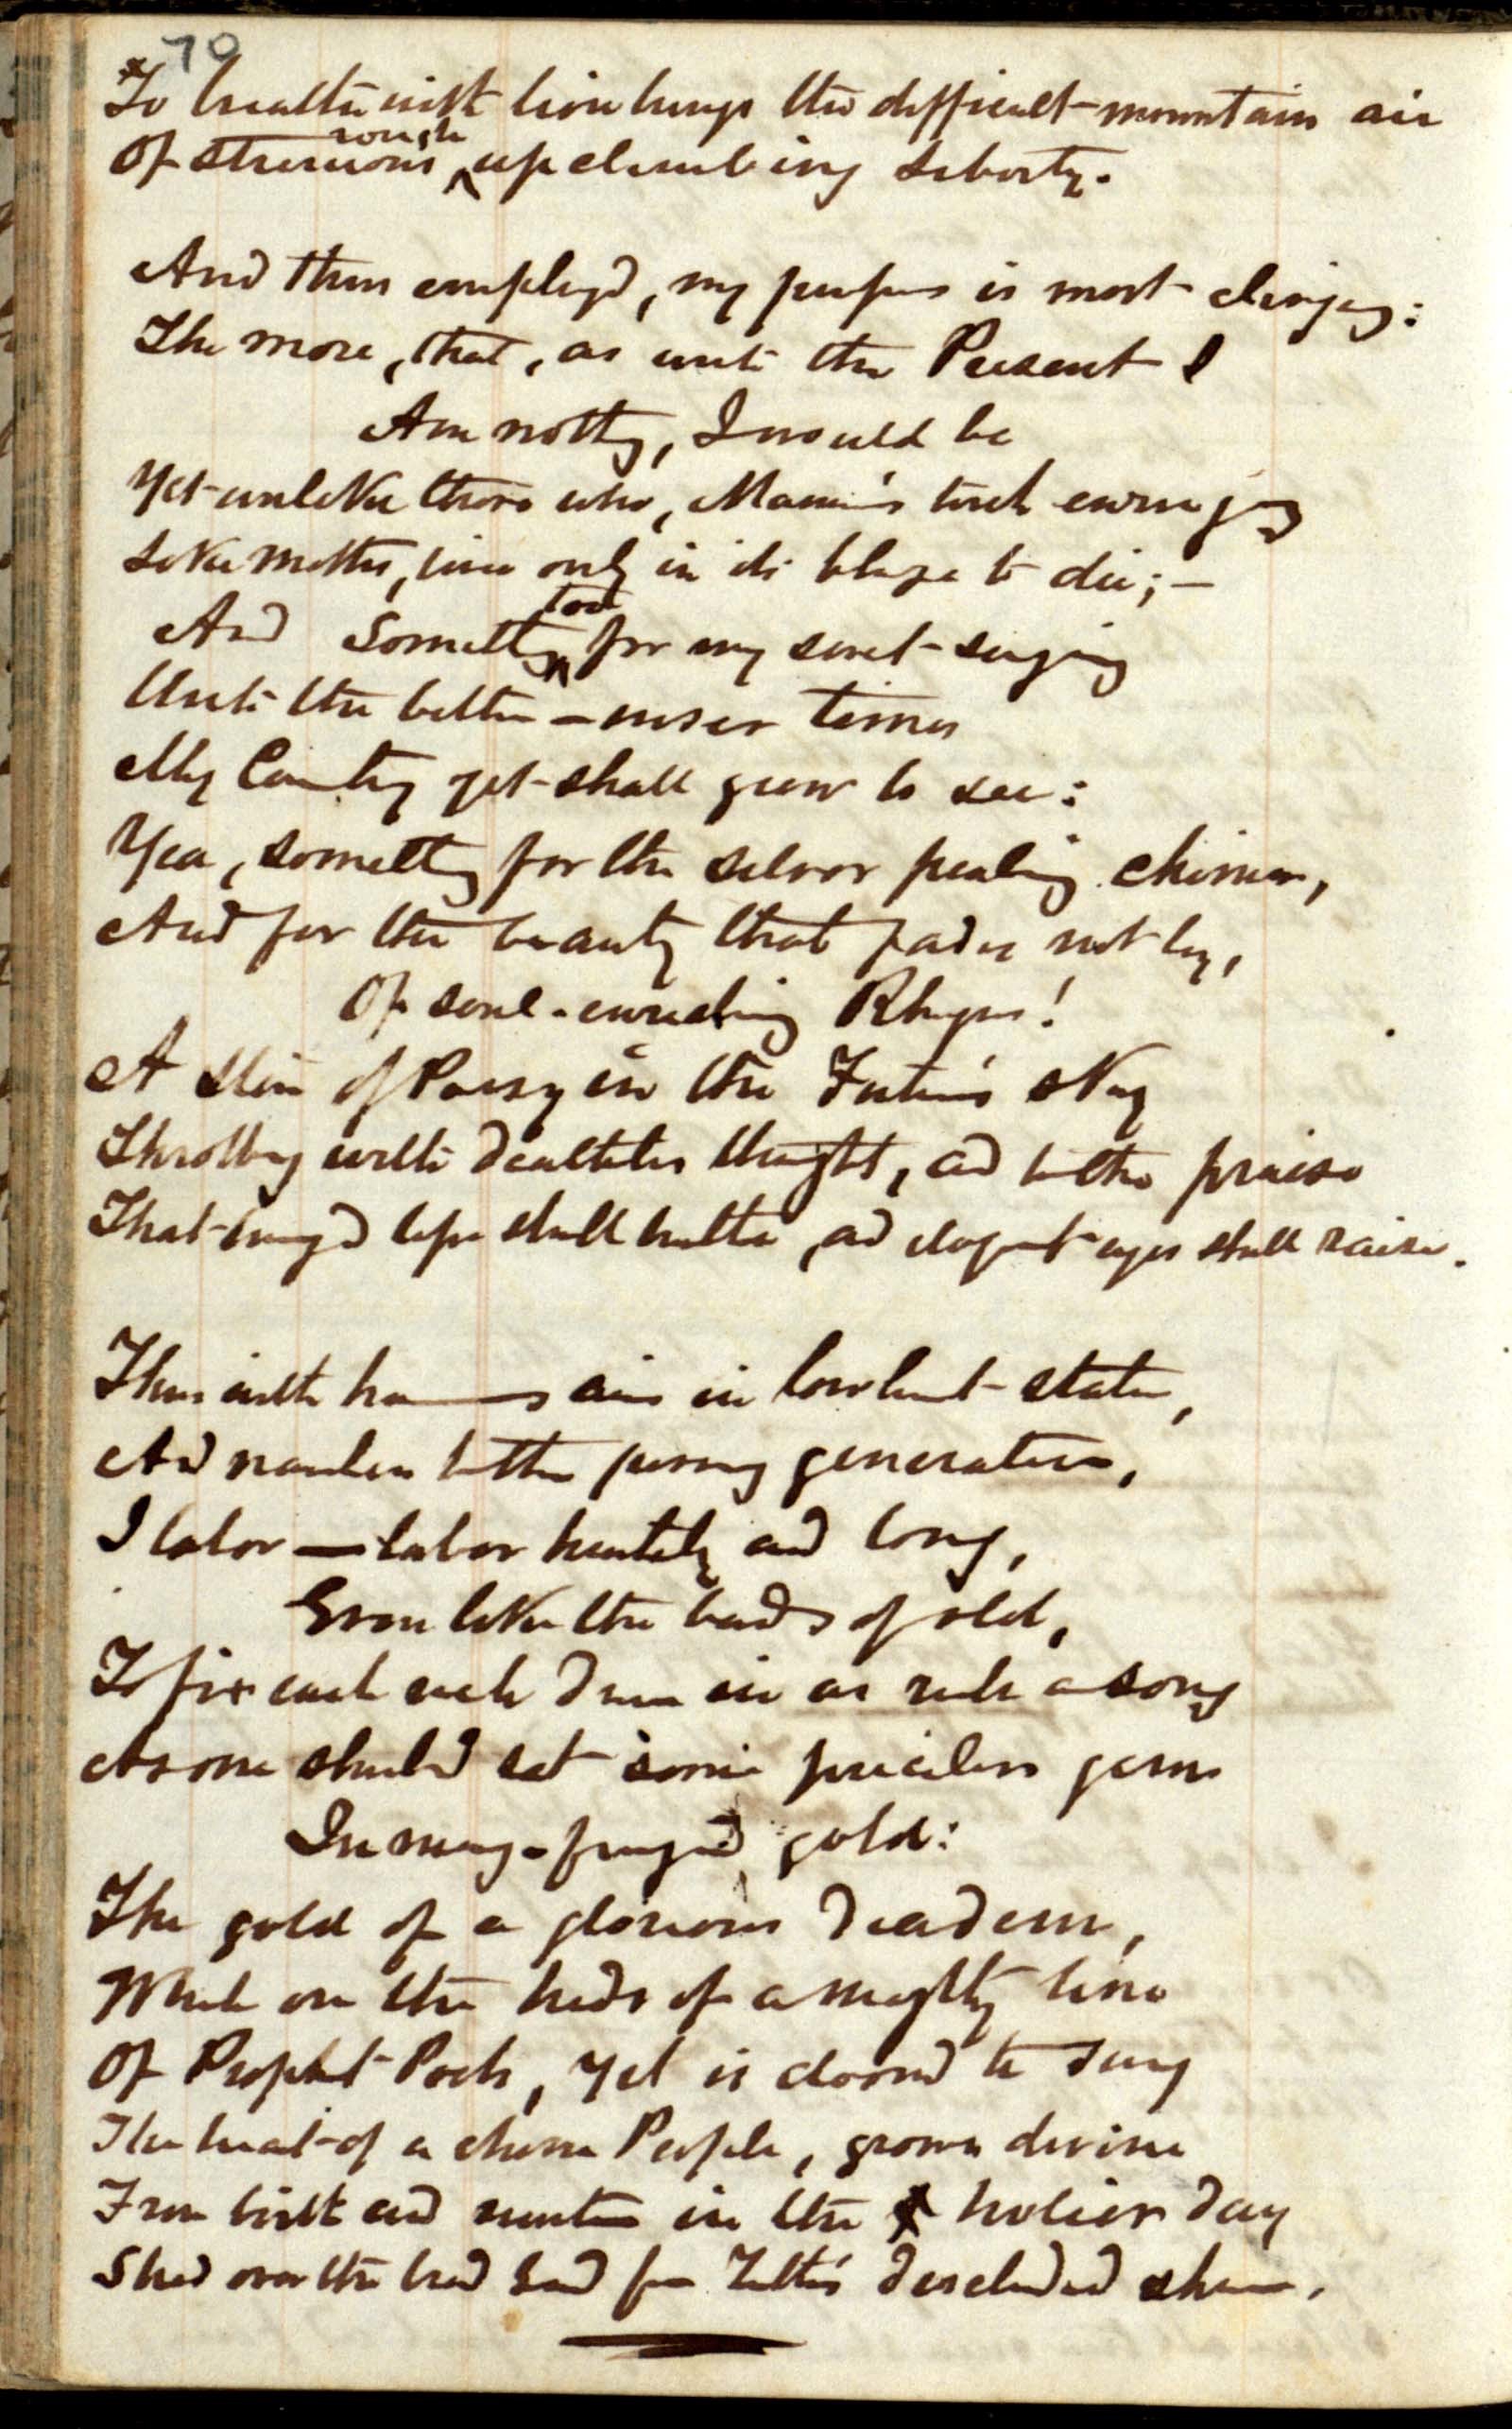 70
To breathe with lion lungs the difficult mountain air
rough
Of strenuous ^ upclimbing Liberty.
And thus employ'd, my purpose is most clinging:
The more, that, as unto the Present I
Am nothing, I would be
Yet unlike those who, Mammon's torch enringing
Like moths, live only in its blaze to die;—
too
And Something ^ for my sweet-singing
Unto the better–wiser times
My Country yet shall grow to see:
Yea, something for the silver pealing chimes,
And for the beauty that fades not by,
Of soul-enriching Rhyme!
A star of Poesy in the Future's sky
Throbbing with deathless thought, and to the praise
That lips shall breathe, and eloquent eyes shall raise.
Thus with aim in lowliest state,
And nameless to the passing generation,
I labor — labor heartily and long,
Even like the bards of old,
To fix each rich dream in as rich a song
As one should set some priceless gem
In many-fringed gold:
The gold of a glorious diadem,
Which on the heads of a mighty line
Of Prophet Poets, yet is doomd to sway
The heart of a chosen People, grown divine
From birth and nurture in the holier day
Shed over the broad land from Truth's shrine.